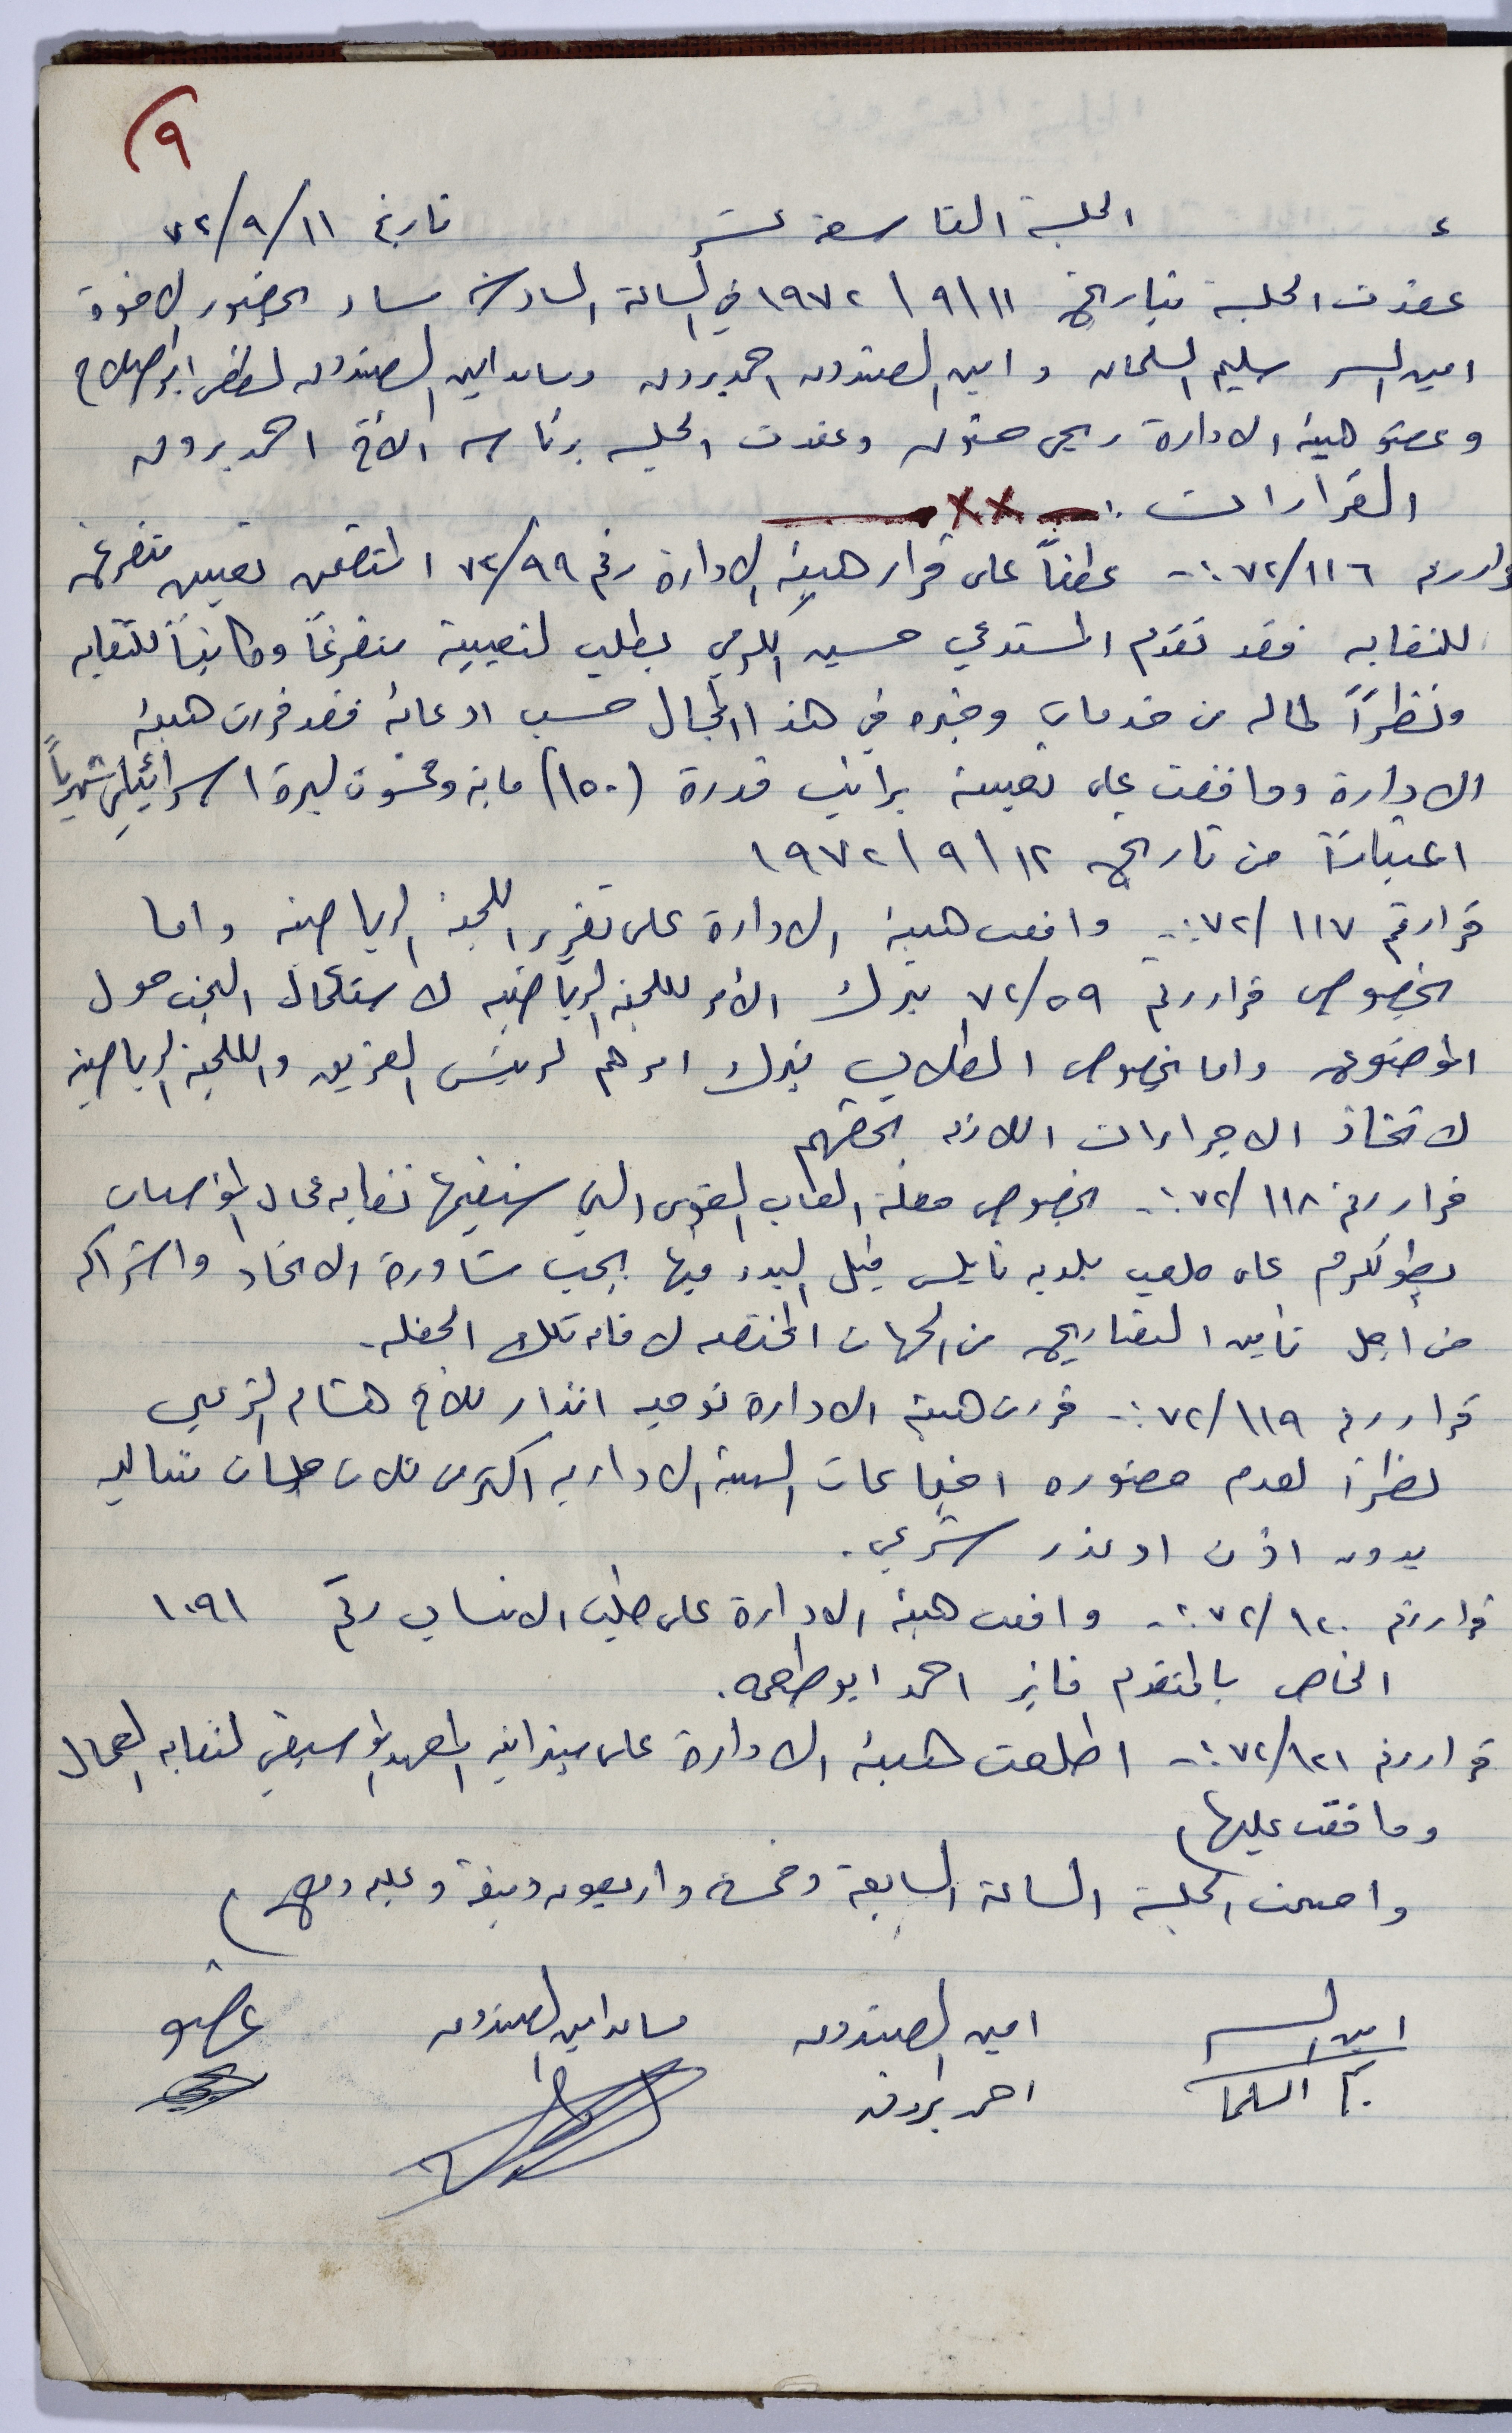 ٩)
الجلسة التاسعة عشر تاريخ ١١/٩/٧٢
عقدت الجلسة بتاريخ ١١/٩/١٩٧٢ في الساعة السادسة مساء بحضور الاخوة
امين السر سليم السلمان و امين الصندوق احمد بروق ومساعد امين الصندوق لطفي ابو صلاح
وعضو هيئة الادارة ربحي حنون وعقدت الجلسة برئاسة الأخ احمد بروق
القرارات :- ××
قرار رقم ١١٦/٧٢ :- عطفاً على قرار هيئة الادارة رقم ٩٩/٧٢ المتضمن تعيين متفرغ
للنقابة فقد تقدم المستدعي حسين الكرمي بطلب لتعيينه متفرغاً وكاتباً للنقابة
ونظراً لما له من خدمات وخبره في هذا المجال حسب ادعائه فقد قررت هيئة
الادارة ووافقت على تعيينه براتب قدرة (١٥٠) ماية وخمسون ليرة اسرائيلي شهرياً
اعتباراً من تاريخ ١٢/٩/١٩٧٢
قرار رقم ١١٧/٧٢ :- وافقت هيئة الادارة على تقرير اللجنة الرياضية واما
بخصوص قرار رقم ٥٩/٧٢ يترك الأمر للجنة الرياضية لاستكمال البحث حول
الموضوع واما بخصوص الطلاب يترك امرهم لرئيس الفريق واللجنة الرياضية
لاتخاذ الاجراءات اللازمة بحقهم
قرار رقم ١١٨/٧٢ :- بخصوص حفلة العاب القوى التي ستقيمها نقابة عمال المؤسسات
بطولكرم على ملعب بلدية نابلس قبل البدء فيها يجب مشاورة الاتحاد واشتراكه
من أجل تأمين التصاريح من الجهات المختصة لاقامة تلك الحفله.
قرار رقم ١١٩/٧٢ :- قررت هيئة الادارة توجيه انذار للأخ هشام الزعبي
نظراً لعدم حضوره اجتماعات الهيئة الادارية اكثر من ثلاث جلسات متتالية
بدون اذن او عذر شرعي.
قرار رقم ١٢٠/٧٢ :- وافقت هيئة الادارة على طلب الانتساب رقم ١٠٩١
الخاص بالمتقدم فايز احمد ابو طعمه.
قرار رقم ١٢١/٧٢ :- اطلعت هيئة الادارة على ميزانية المعهد الموسيقي لنقابة العمال
ووافقت عليها
واختتمت الجلسة الساعة السابعة وخمسة واربعون دقيقة وعليه وقع
امين السر امين الصندوق مساعد امين الصندوق عضو
السلمان احمد بروق